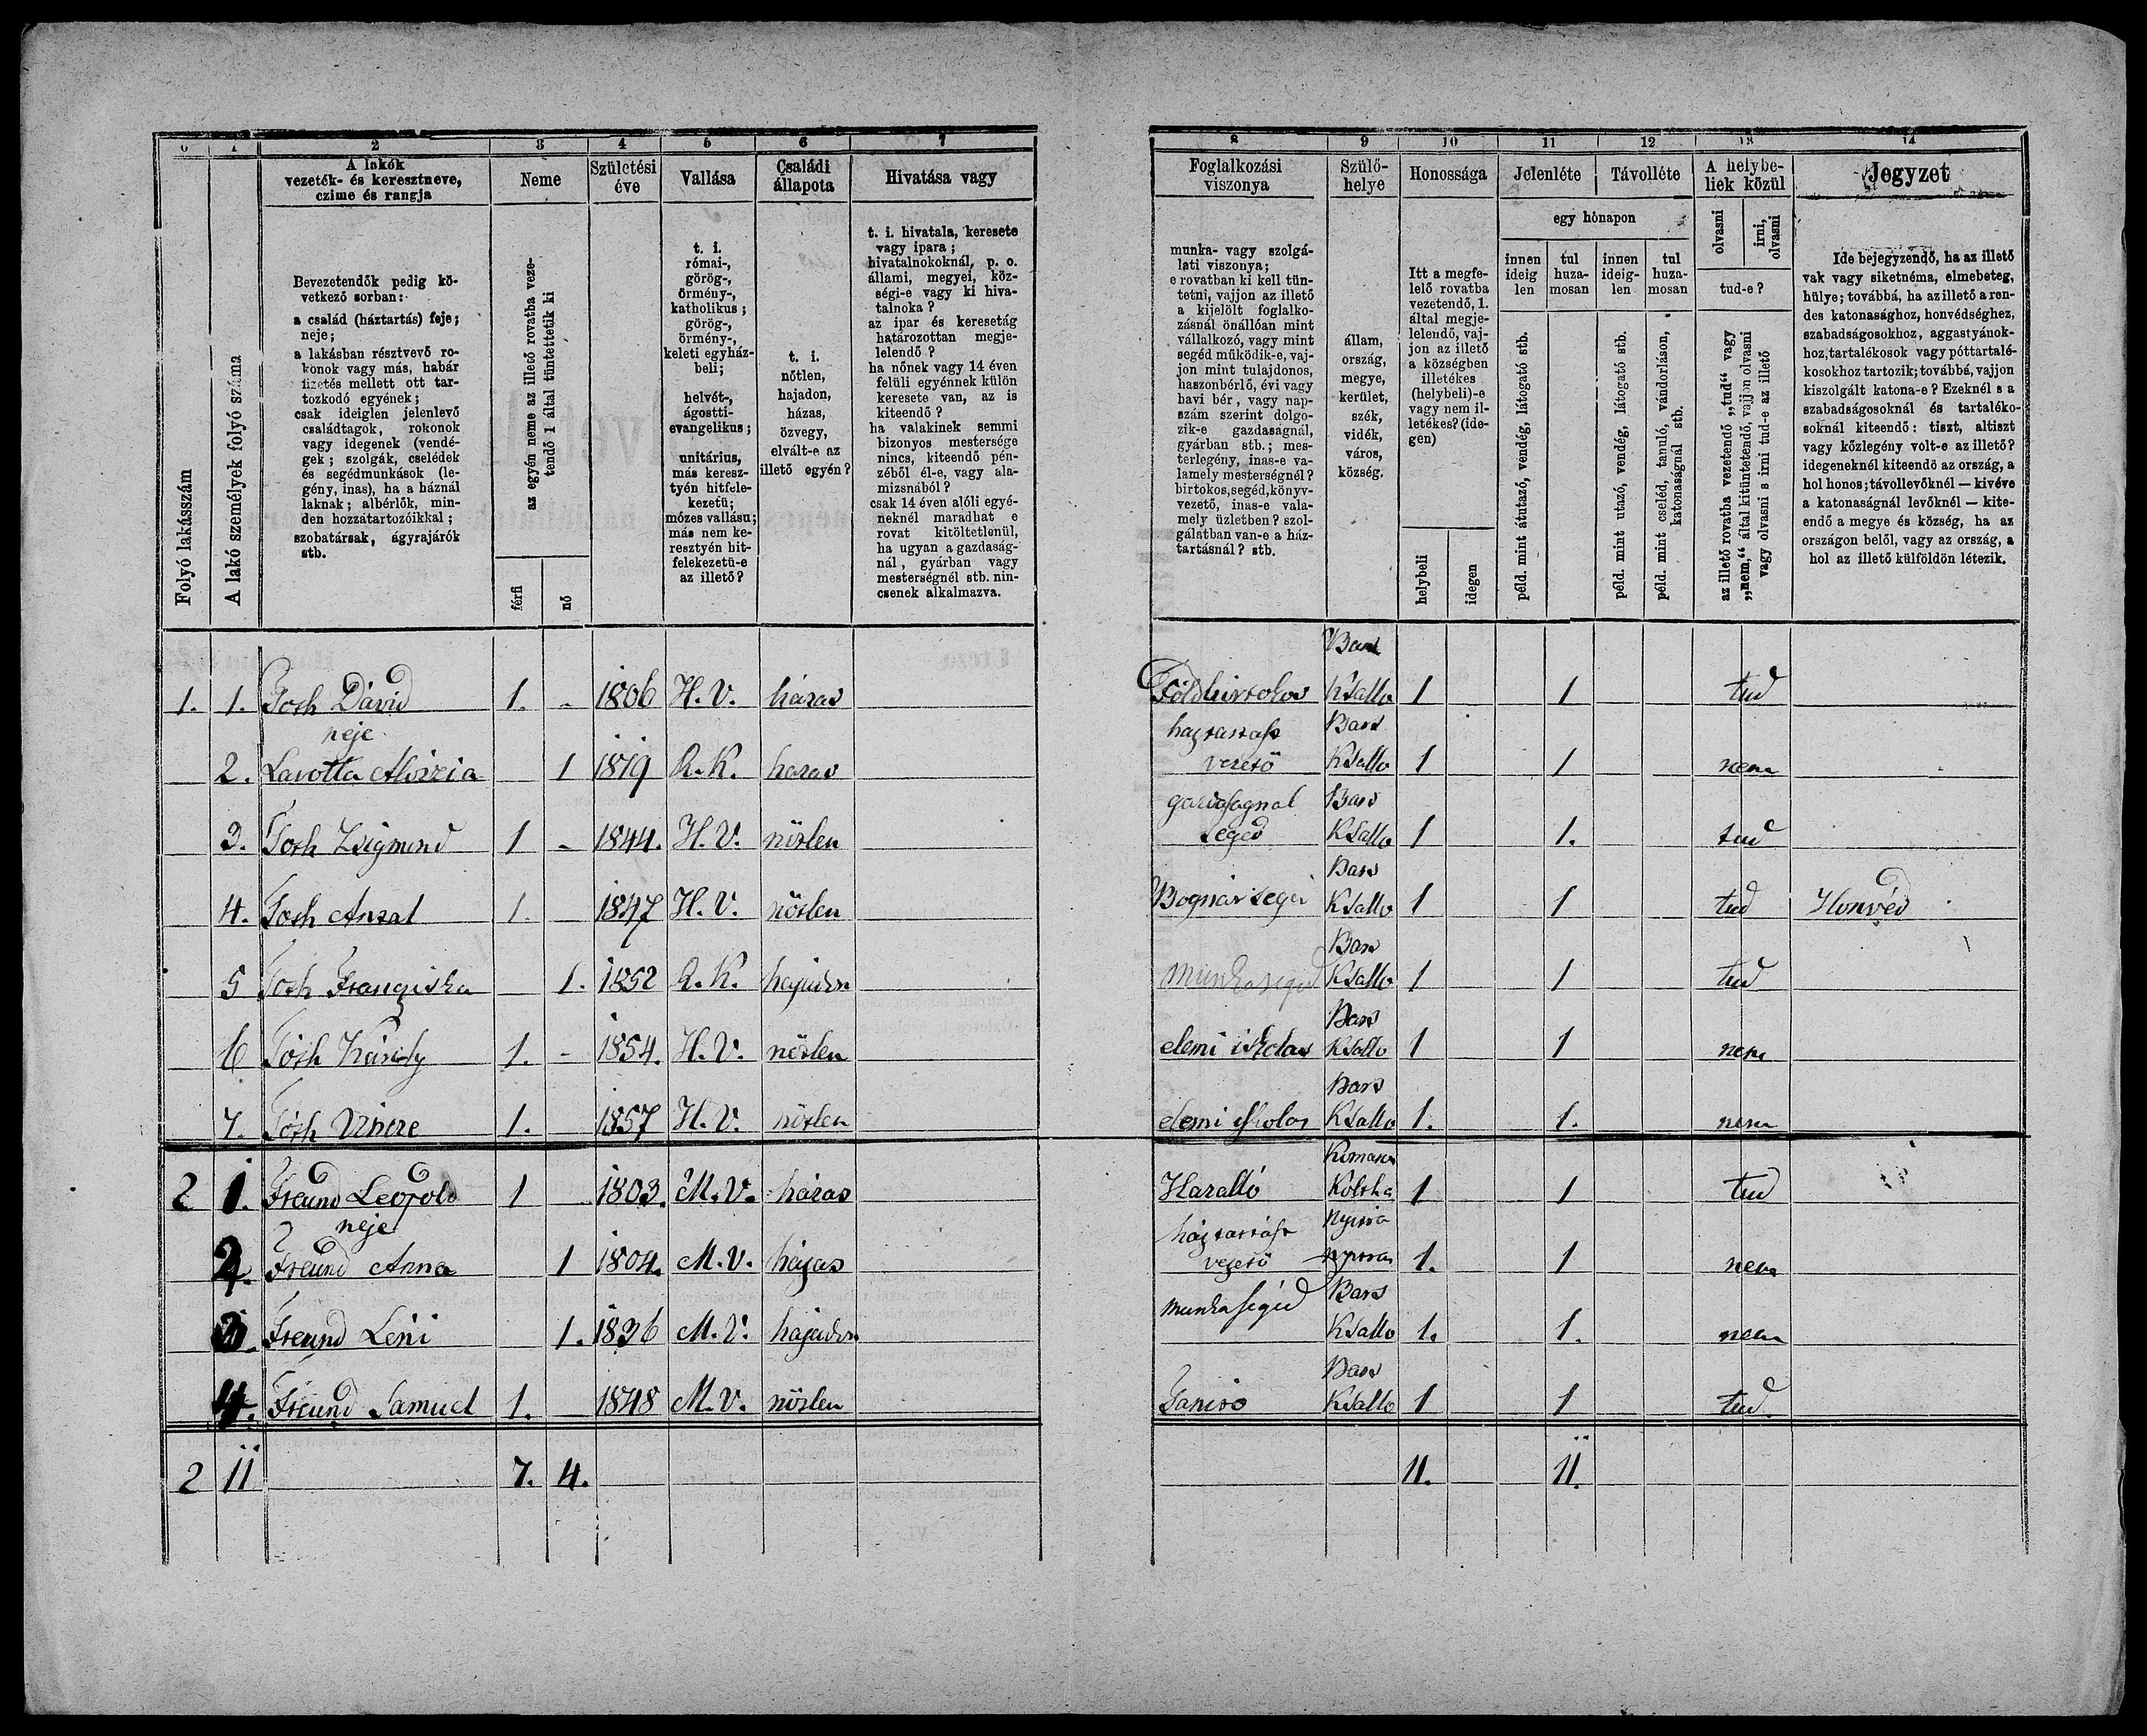 0 1 2 3 4 5 6 7
A lakók
vezeték- és keresztneve,
czime és rangja
Neme
Születési
éve
Vallása
Családi
állapota
Hivatása vagy
Folyó lakásszám
A lakó személyek folyó száma
Bevezetendők pedig kö-
vetkező sorban:
a család (háztartás) feje;
neje;
a lakásban résztvevő ro-
konok vagy más, habár
fizetés mellett ott tar-
tozkodó egyének;
csak ideiglen jelenlevő
családtagok, rokonok
vagy idegenek (vendé-
gek; szolgák, cselédek
és segédmunkások (le-
gény, inas), ha a háznál
laknak; albérlők, min-
den hozzátartozóikkal;
szobatársak, ágyrajárók
stb.
az egyén neme az illető rovatba veze-
tendő 1 által tüntettetik ki
férfi
nő
t. i.
római-,
görög-,
örmény-,
katholikus;
görög-,
örmény-,
keleti egyház-
beli;
helvét-,
ágostti-
evangelikus;
unitárius,
más keresz-
tyén hitfele-
kezetü;
mózes vallásu;
más nem ke-
resztyén hit-
felekezetü-e
az illető?
t. i.
nőtlen,
hajadon,
házas,
özvegy,
elvált-e az
illető egyén?
t. i. hivatala, keresete
vagy ipara;
hivatalnokoknál, p. o.
állami, megyei, köz-
ségi-e vagy ki hiva-
talnoka?
az ipar és keresetág
határozottan megje-
lelendő?
ha nőnek vagy 14 éven
felüli egyénnek külön
keresete van, az is
kiteendő?
ha valakinek semmi
bizonyos mestersége
nincs, kiteendő pén-
zéből él-e, vagy ala-
mizsnából?
csak 14 éven alóli egyé-
neknél maradhat e
rovat kitöltetlenül,
ha ugyan a gazdaság-
nál, gyárban vagy
mesterségnél stb. nin-
csenek alkalmazva.
1. 1. Toth Dávid 1. - 1806 H. V. házas
neje
2. Lavotta Aloizia 1 1819 R. K. hazas
3. Toth Zsigmund 1 - 1844. H. V. nötlen
4. Toth Antal 1. 1847 H. V. nötlen
5 Toth Franciska 1. 1852 R. K. hajadon
6 Tóth Károly 1. - 1854. H. V. nötlen
7. Tóth Vincze 1. 1857 H. V. nötlen
2 1. Freund Leopold 1 1803. M. V. házas
neje
2. Freund Anna 1 1804. M. V. házas
3. Freund Leni 1. 1836 M. V. hajadon
4. Freund Samuel 1. 1848 M. V. nötlen
2 11 7. 4.
8 9 10 11 12 13 14
Foglalkozási
viszonya
Szülő-
helye
Honossága
Jelenléte
Távolléte
A helybe-
liek közül
Jegyzet
munka- vagy szolgá-
lati viszonya;
e rovatban ki kell tün-
tetni, vajjon az illető
a kijelölt foglalko-
zásnál önállóan mint
vállalkozó, vagy mint
segéd müködik-e, vaj-
jon mint tulajdonos,
haszonbérlő, évi vagy
havi bér, vagy nap-
szám szerint dolgo-
zik-e gazdaságnál,
gyárban stb.; mes-
terlegény, inas-e va-
lamely mesterségnél?
birtokos, segéd, könyv-
vezető, inas-e vala-
mely üzletben? szol-
gálatban van-e a ház-
tartásnál? stb.
állam,
ország,
megye,
kerület,
szék,
vidék,
város,
község.
Itt a megfe-
lelő rovatba
vezetendő, 1.
által megje-
lelendő, vaj-
jon az illető
a községben
illetékes
(helybeli)-e
vagy nem il-
letékes? (ide-
gen)
helybeli
idegen
egy hónapon
innen
ideig
len
tul
huza-
mosan
innen
ideig-
len
tul
huza-
mosan
péld. mint átutazó, vendég, látogató stb.
péld. mint utazó, vendég, látogató stb.
péld. mint cseléd, tanuló, vándorláson,
katonaságnál stb.
olvasni
irni,
olvasni
tud-e?
az illető rovatba vezetendő „tud“ vagy
„nem,“ által kitüntetendő, vajjon olvasni
vagy olvasni s irni tud-e az illető
Ide bejegyzendő, ha az illető
vak vagy siketnéma, elmebeteg,
hülye; továbbá, ha az illető a ren-
des katonasághoz, honvédséghez,
szabadságosokhoz, aggastyánok-
hoz, tartalékosok vagy póttartalé-
kosokhoz tartozik; továbbá, vajjon
kiszolgált katona-e? Ezeknél s a
szabadságosoknál és tartaléko-
soknál kiteendő: tiszt, altiszt
vagy közlegény volt-e az illető?
idegeneknél kiteendő az ország, a
hol honos; távollevőknél — kivéve
a katonaságnál levőknél — kite-
endő a megye és község, ha az
országon belől, vagy az ország, a
hol az illető külföldön létezik.
Bars
Földbirtokos KSallo 1 1 tud
haztartás Bars
vezető KSallo 1 1 nem
gazdaságnal Bars
seged KSallo 1 1. tud
Bars
Bognár seged KSallo 1 1 tud Honvéd
Bars
Munkasegéd KSallo 1 1 tud
Bars
elemi iskolas KSallo 1 1 nem
Bars
elemi iskolas KSallo 1. 1. nem
Házaló 1 1 tud
háztartás Nyitra
vezető 1. 1 nem
Munkasegéd Bars
KSallo 1. 1. nem
Bars
Tanito KSallo 1 1 tud
11. 11.